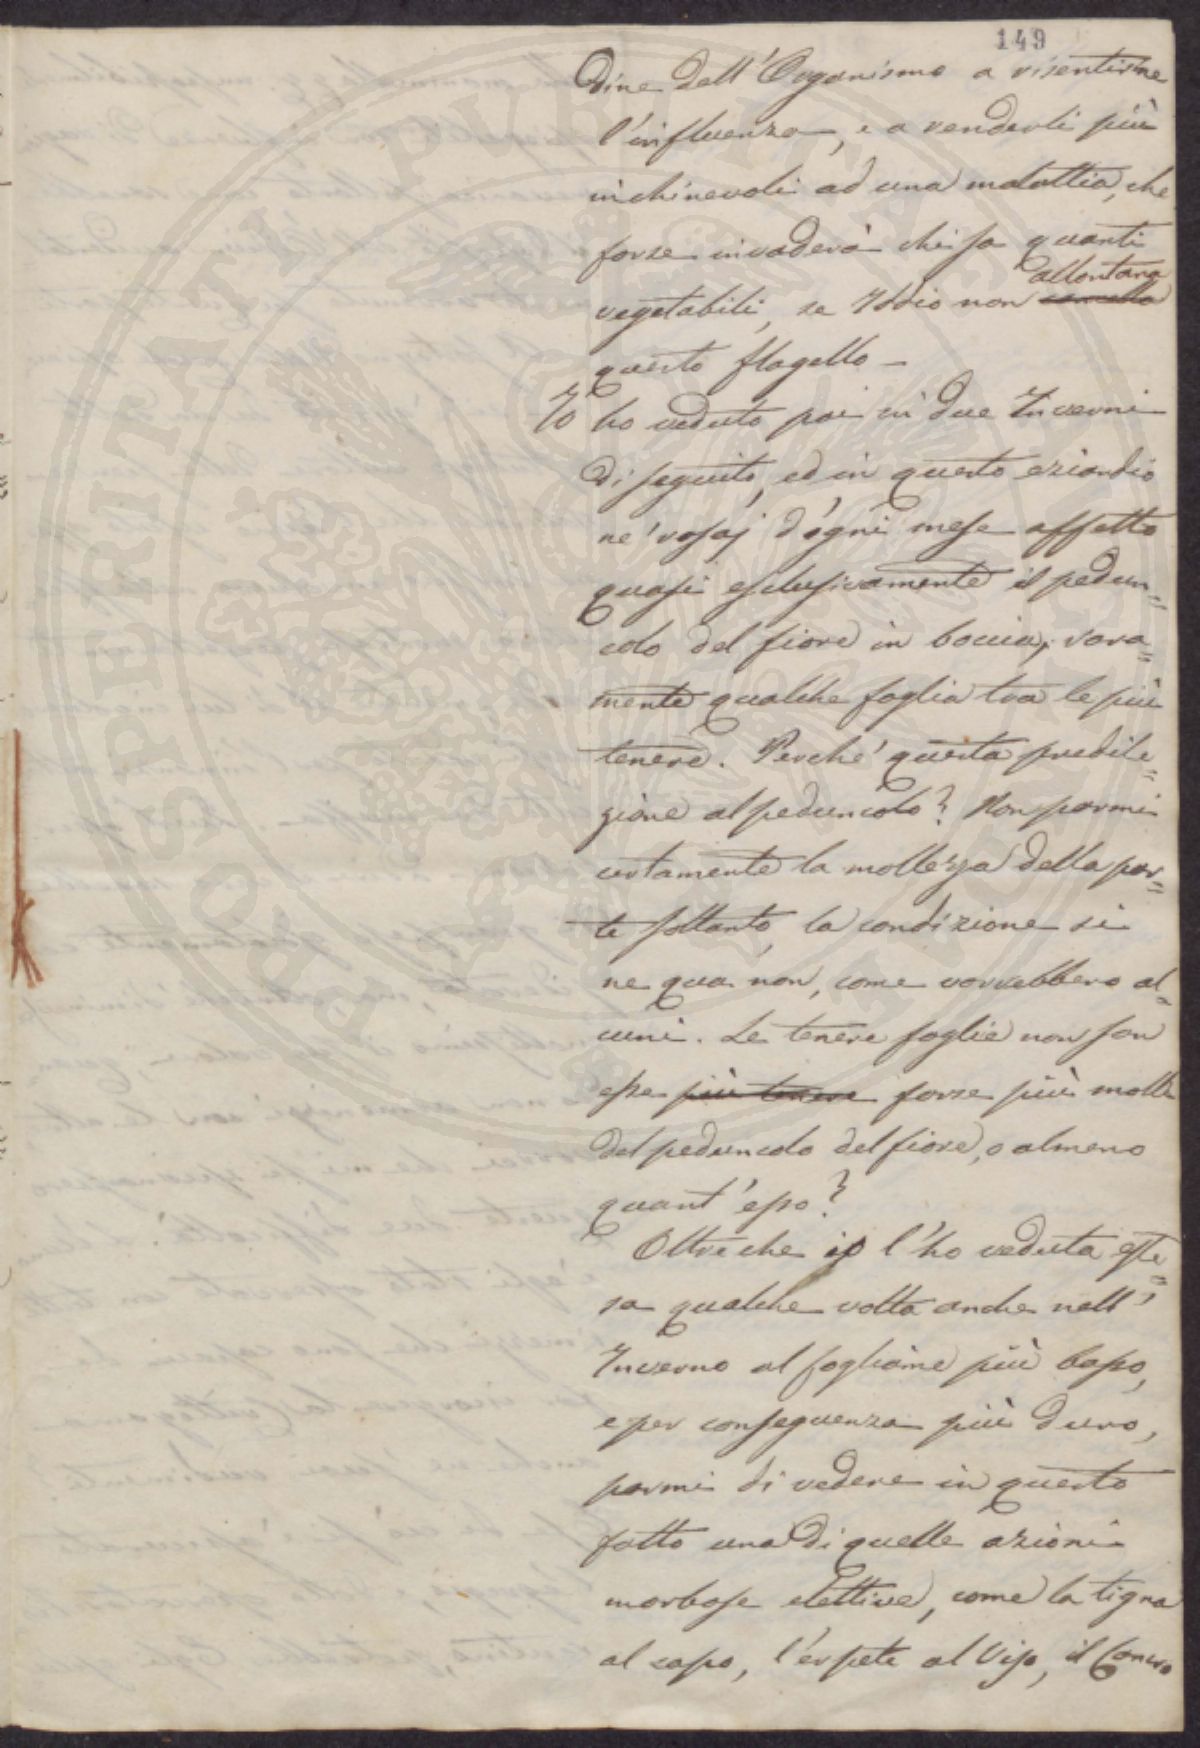 149
dine dell'Organismo a risentirne
l'influenza, e a renderli più
inchinevoli ad una malattia, che
forse invaderà chi sa quanti
allontana
vegetabili, se Iddio non cancella
questo flagello –
Io ho veduto poi in due Inverni
di seguito, ed in questo eziandio
ne' rosaj d'ogni mese affetto
quasi esclusivamente il pedun=
colo del fiore in boccia; rara=
mente qualche foglia tra le più
tenere. Perché questa predile=
zione al peduncolo? Non parmi
certamente la mollezza della par=
te soltanto, la condizione si
ne qua non, come vorrebbero al=
cuni. Le tenere foglie non son
esse più tenere forse più molli
del peduncolo del fiore, o almeno
quant'esso?
Oltreche io l'ho veduta este=
sa qualche volta anche nell'
Inverno al fogliame più basso,
e per conseguenza più duro,
parmi di vedere in questo
fatto una di quelle azioni
morbose elettive, come la tigna
al capo, l'erpete al viso, il Cancro
PROSPERITATI PUBLICAE